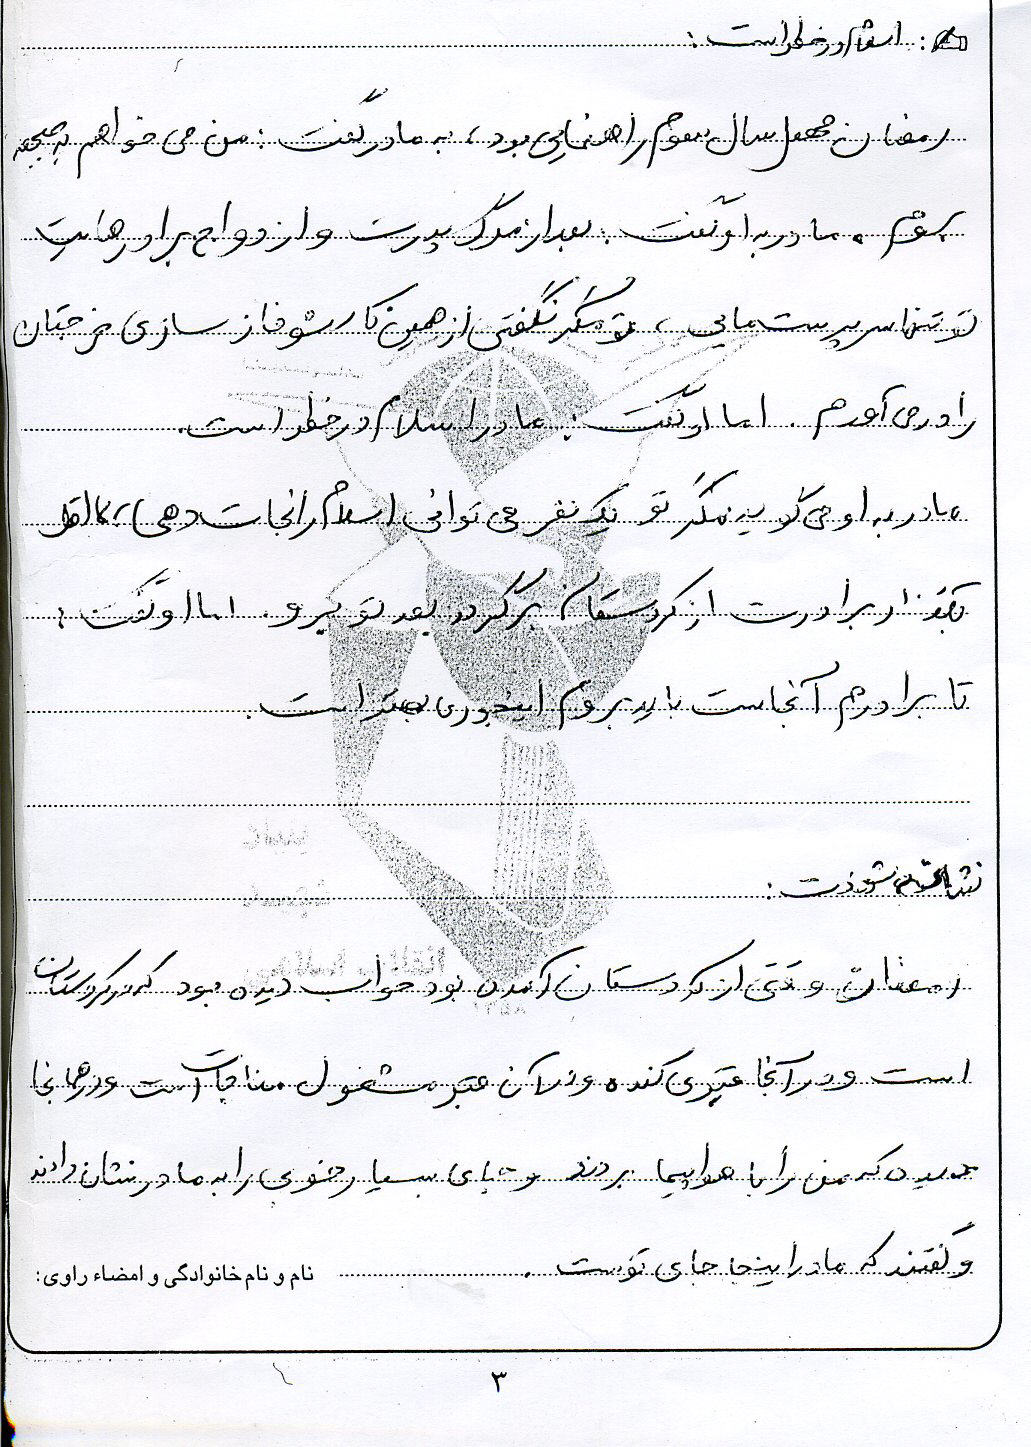 اسلام در خطر است :
رمضان محصل سال سوم راهنمایی بود، به مادر گفت : من می خواهم به جبهه
بروم . مادر به او گفت : بعد از مرگ پدرت و ازدواج برادرهایت
تو تنها سرپرست مایی ، تو مگر نگفتی از همین کار شوفاژ سازی خرجتان
را در می آورم . اما او گفت : مادر اسلام در خطر است .
مادر به او می گوید مگر تو یک نفر می توانی اسلام را نجات دهی، لااقل
بگذار برادرت از کردستان برگردد بعد تو برو . اما او گفت :
تا برادرم آنجاست باید بروم اینجوری بهتر است .
شهادت :
رمضان وقتی از کردستان آمده بود خواب دیده بود که در کردستان
است و در آنجا قبری کنده و در آن قبر مشغول مناجات است و در همانجا
دیده که من را با هواپیما بردند و جای بسیار خوبی را به مادر نشان دادند
و گفتند که مادر اینجا جای توست .
نام و نام خانوادگی و امضاء راوی:
۳